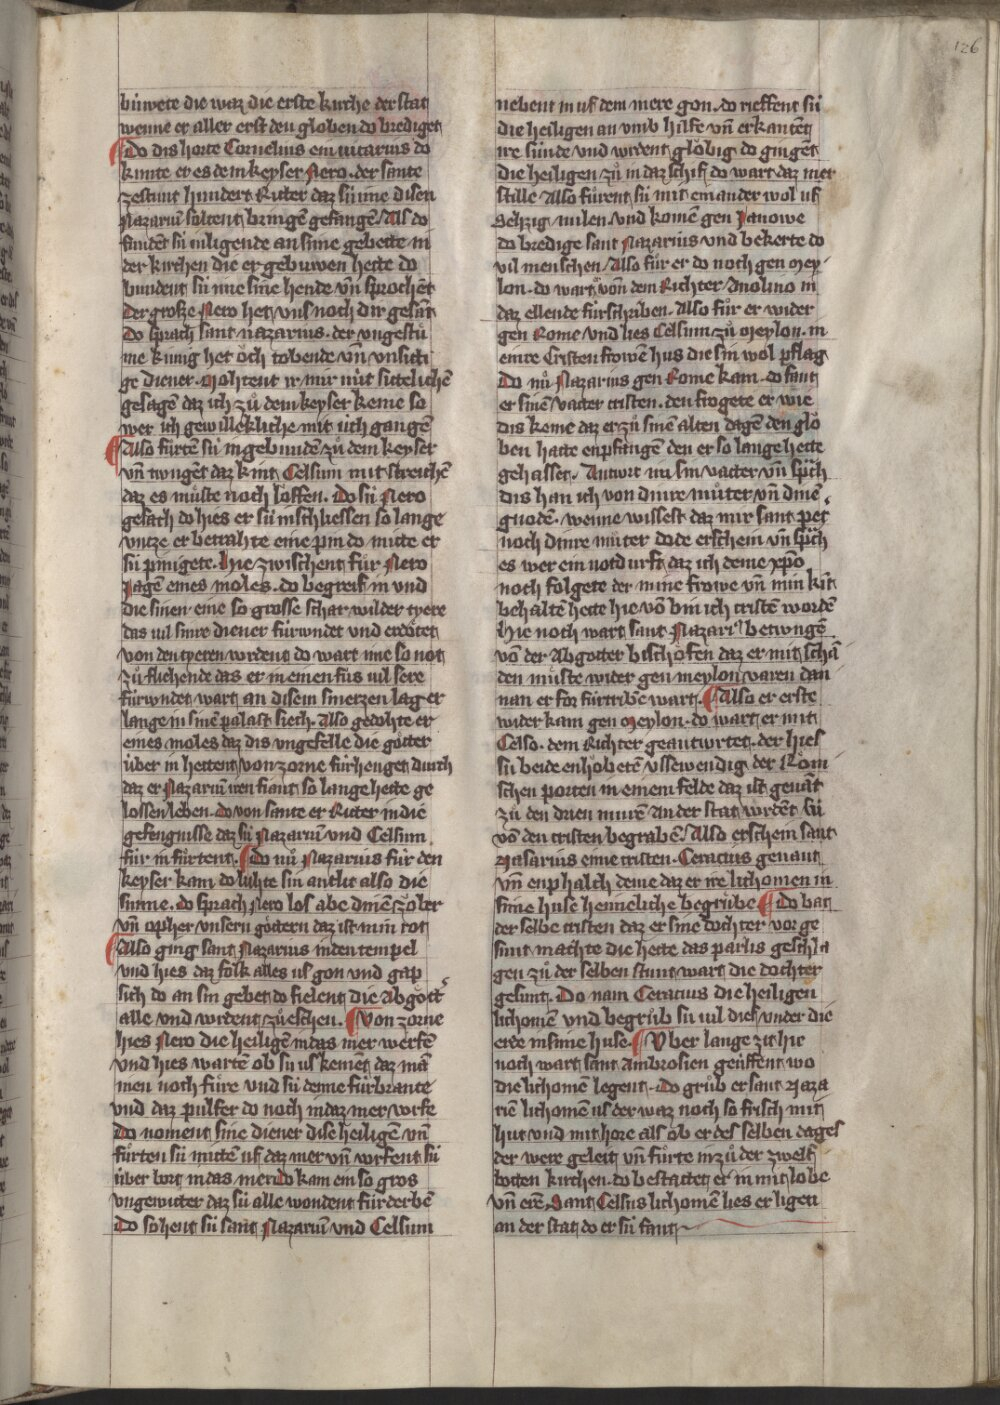 126
buwete die waz die erste kirche der stat
wenne er aller erst den glöben do brediget
Do dis horte Cornelius ein vicarius do
kunte er es dem keyser Nero. der sante
zestunt hundert Ritter daz sü ime disen
Nazariū soltent bringē gefangē Als do
fundēt sü in ligende an sime gebette in
der kirchen die er gebuwen hette do
bundent sü ime sine hende vn̄ sprochēt
der grosze Nero het vns noch dir gesāt
Do sprach sant nazarius. der vngestü
me kunig het öch tobende vn̄ vnsich
ge diener. Mohtent ir mir nüt sittelichē
gesagē daz ich zů dem keyser keme so
wer ich gewillekliche mit üch gangē
Also fürtē sü in gebundē zů dem keyser
vn̄ twngēt daz kint Celsum mit streichē
daz es můste noch löffen. Do sü Nero
gesach do hies er sü inschliessen so lange
vntze er betrahte eine pin do mitte er
sü pinigete. Hie zwischent fůr Nero
Jagē eines moles. do begreif in vnd
die sinen eine so grosse schar wilder tyere
das vil sinre diener fürwndet vnd erdötet
von den tyeren wrdent do wart ime so not
zů fliehende das er in eimen fůs vil sere
fürwndet wart an disem smerzen lag er
lange in sinē palast siech. Also gedohte er
eines moles daz dis vngefelle die götter
über in hettent von zorne fürhenget durch
daz er Nazariū iren fiant so lange hette ge
lossen leben. do von sante er Ritter in die
gefengnisse daz sü Nazariū vnd Celsum
für in fürtent. Do nů Nazarius für den
keyser kam do luhte sin antlit also die
sunne. do sprach Nero los abe dinē zöber
vn̄ opher vnsern göttern daz ist min rot
Also ging sant Nazarius in den tempel
vnd hies daz folk alles us gon vnd gap
sich do an sin gebet do fielent die Abgött
alle vnd wrdent zů eschen. Von zorne
hies Nero die heiligē in das mer werfē
vnd hies wartē ob sü us kemēt daz mā
inen noch füre vnd sü denne fürbrante
vnd daz pulfer do noch in daz mer wrfe
Do noment sine diener dise heiligē vn̄
fürten sü mittē uf daz mer vn̄ wrfent sü
über bort in das mer do kam ein so gros
vngewitter daz sü alle wondent fürderbē
Do sohent sü sant Nazariū vnd Celsum
nebent in uf dem mere gon. do rieffent sü
die heiligen an vmb hilfe vn̄ erkantēt
ire sünde vnd wrdent glöbig do gingēt
die heiligen zů in daz schif do wart daz mer
stille Also fürent sü mit einander wol uf
Sehzig milen vnd komē gen Janowe
do bredige sant Nazarius vnd bekerte do
vil menschen Also fůr er do noch gen Mey
lon. do wart von dem Richter Anolino in
daz ellende fürschribē. Also fůr er wider
gen Rome vnd lies Celsum zů Meylon. in
einre Cristen frowē hus die sin wol pflag
Do nů Nazarius gen Rome kam. do fant
er sinē vatter cristen. den frogete er wie
dis keme daz er zů sinē alten dagē den glö
ben hatte enpfangē den er so lange hette
gehasset. Antwrt im sin vatter vn̄ spͣch
dis han ich von dinre můter vn̄ dinē
gnodē. wenne wissest daz mir sant pet
noch dinre můter dode erschein vn̄ spͣch
es wer ein notdurft daz ich deme xp̄o
noch folgete der mine frowe vn̄ min kīt
behaltē hette hie vō bin ich cristē wordē
Hie noch wart sant Nazariꝰ betwngē
vō der Abgötter bischöfen daz er mit schā
den můste wider gen meylon varen dan
nan er for fürtribē wart. Also er erste
wider kam gen Meylon. do wart er mit
Celso. dem Richter geantwrtet. der hies
sü beide enhöbetē vssewendig der Röm
schen porten in einem felde daz ist genāt
zů den drien murē An der stat wrdēt sü
vō den cristen begrabē. Also erschein sant
Nasarius eime cristen. Ceracius genant
vn̄ enphalch deme daz er ire lichomen in
sime huse heimeliche begrübe Do bat
der selbe cristen daz er sine dochter vor ge
sunt machte die hette das parlis geschla
gen zů der selben stunt wart die dochter
gesunt. Do nam Ceracius die heiligen
lichomē vnd begrůb sü vil dief vnder die
erde in sime huse. Vber lange zit hie
noch wart sant Ambrosien geüffent wo
die lichomē legent. do grůb er sant Naza
riē lichomē us der waz noch so frisch mit
hut vnd mit hore als ob er des selben dages
der were geleit vn̄ fürte in zů der zwelf
botten kirchen. do bestattet er in mit lobe
vn̄ erē. Sant Celsus lichomē lies er ligen
an der stat do er sü fant